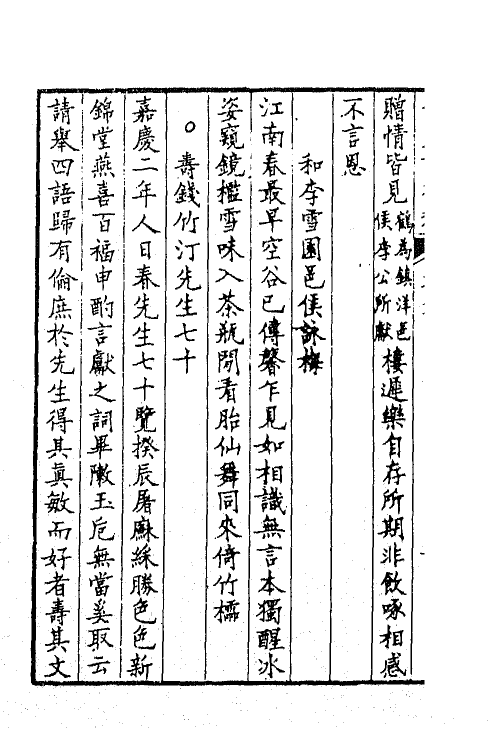 贈情皆見鶴為鎮洋邑侯李公所獻棲遲樂自存所期非飲啄相感
不言恩
和李雪園邑侯詠梅
江南春最早空谷已傳馨乍見如相識無言本獨醒冰
姿窺鏡檻雪味入茶瓶閒看胎仙舞同來倚竹櫺
○壽錢竹汀先生七十
嘉慶二年人日春先生七十覽揆辰屠蘇綵勝色色新
錦堂燕喜百福申酌言獻之詞畢陳玉卮無當奚取云
請舉四語歸有倫庶於先生得其真敏而好者壽其文